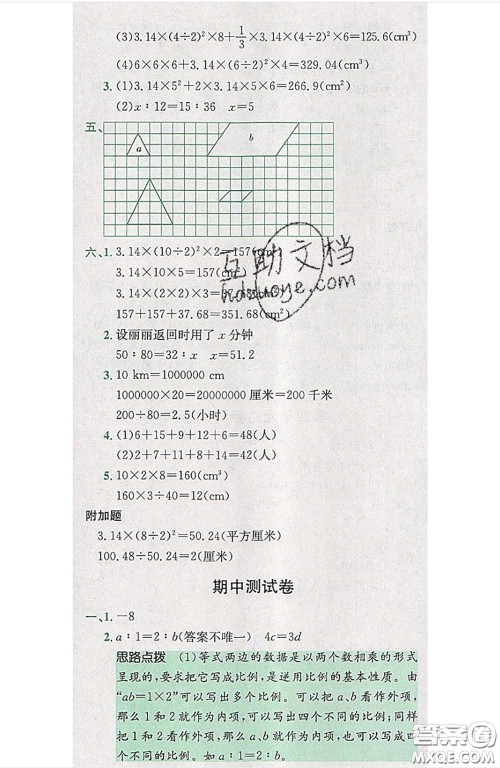 (3)3.14×(4÷2)²×8+1/3×3.14×(4÷2)²×6=125.6(cm³)
(4)6×6×6+3.14×(6÷2)²×4=329.04(cm³)
3.(1)3.14×5²+2×3.14×5×6=266.9(cm²)
(2)x∶12=15∶36 x=5
五、
a
b
六、1. 3.14×(10÷2)²×2=157(cm²)
3.14×10×5=157(cm²)
3.14×(2×2)×3=37.68(cm²)
157+157+37.68=351.68(cm²)
2. 设丽丽返回时用了x分钟
50∶80=32∶x x=51.2
3. 10 km=1000000 cm
1000000×20=20000000厘米=200千米
200÷80=2.5(小时)
4. (1)6+15+9+12+6=48(人)
(2)2+7+11+8+14=42(人)
5. 10×2×8=160(cm³)
160×3÷40=12(cm)
附加题
3.14×(8÷2)²=50.24(平方厘米)
100.48÷50.24=2(厘米)
期中测试卷
一、1. −8
2. a∶1=2∶b(答案不唯一) 4c=3d
思路点拨 (1)等式两边的数据是以两个数相乘的形式
呈现的，要求把它写成比例，是逆用比例的基本性质。由
“ab=1×2”可以写出多个比例。可以把a、b看作外项，
那么1和2就作为内项，可以写出四个不同的比例；同样
把1和2看作外项，那么a、b就作为内项，也可以写出四
个不同的比例。如a∶1=2∶b。
互助文档
hdzuoye.com
答案圈
MXQE.COM